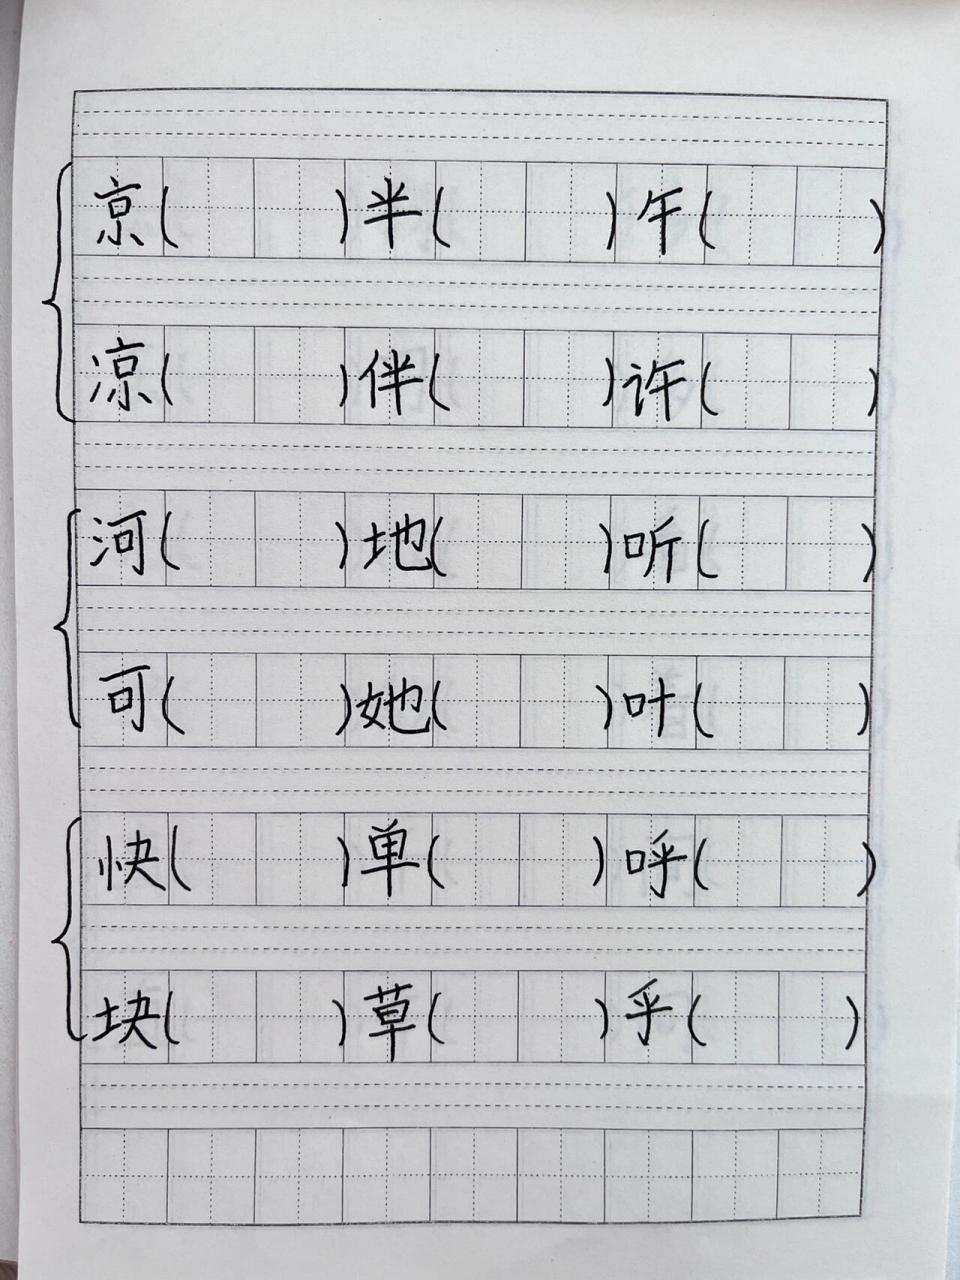 京( )半( )午( )
凉( )伴( )许( )
河( )地( )听( )
可( )她( )叶( )
快( )单( )呼( )
块( )草( )乎( )